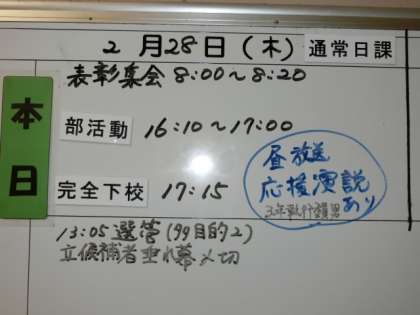 2月28日(木) 通常日課
本日
表彰集会 8:00~8:20
部活動 16:10~17:00
完全下校 17:15
昼放送
応援演説
あり
13:05 選管(多目的2)
立候補者垂れ幕〆切